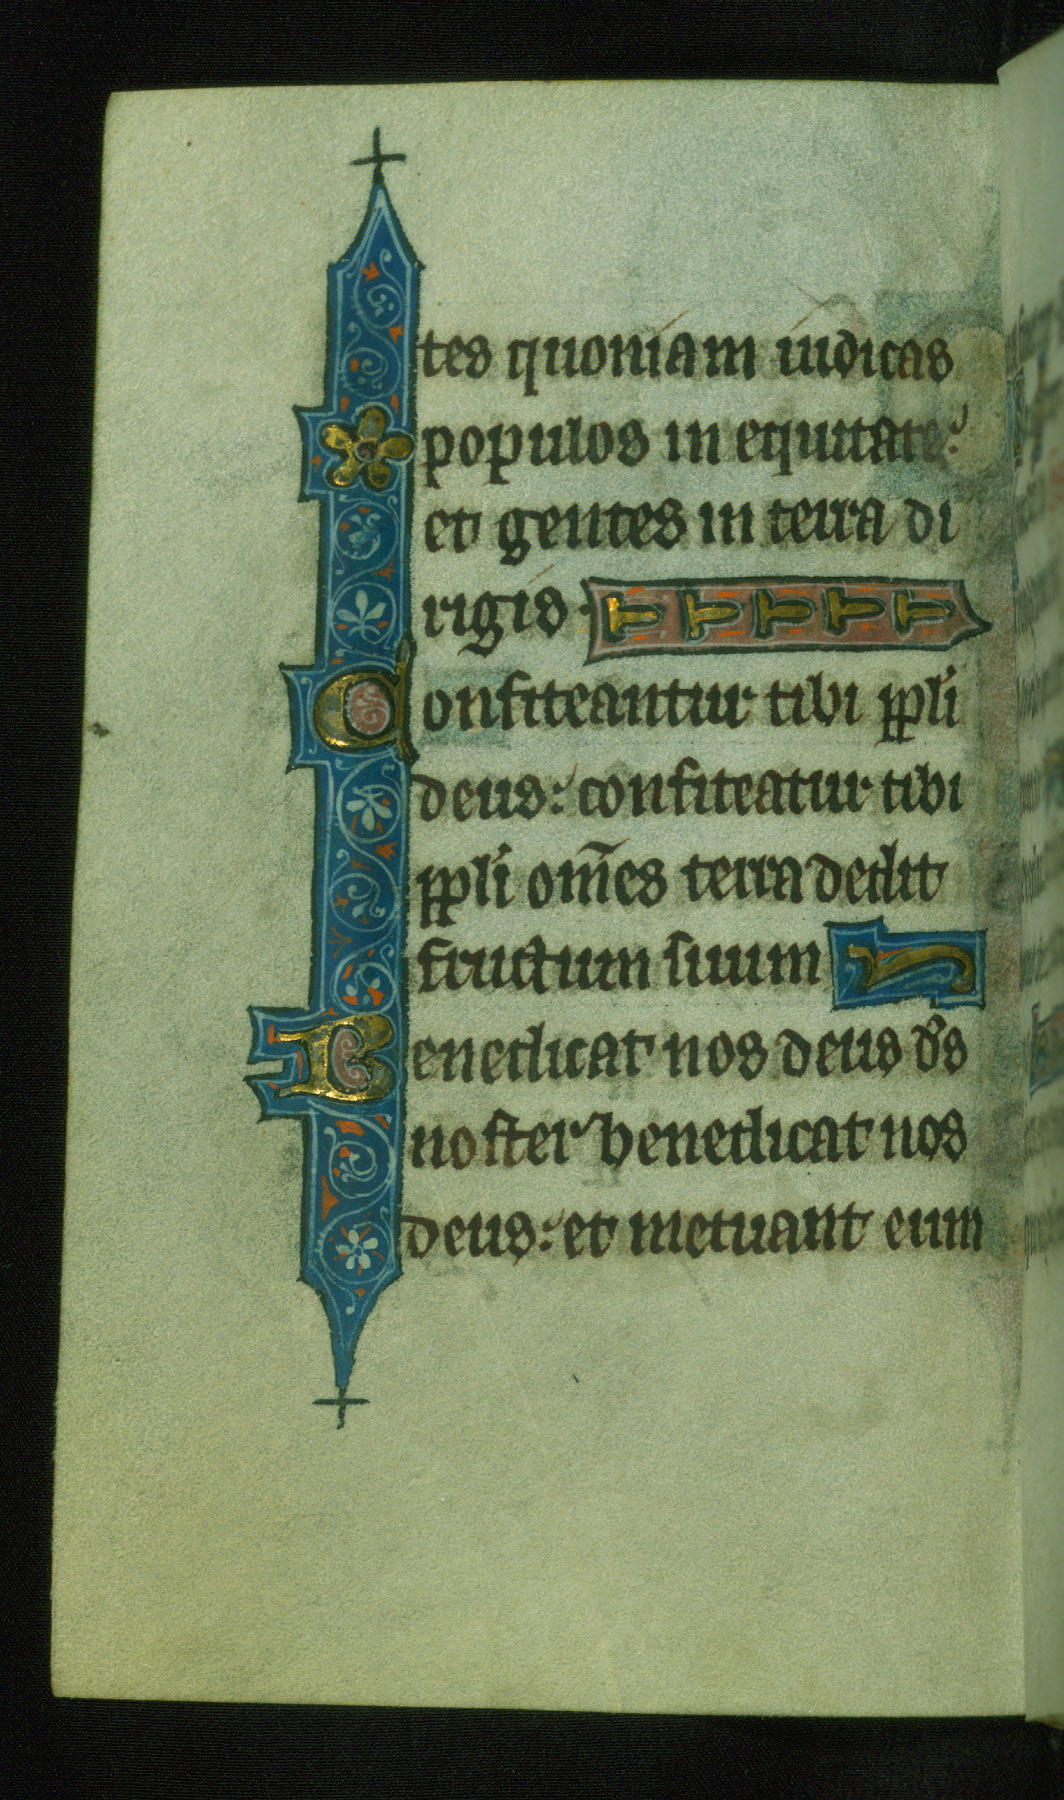 tes quoniam iudicas
populos in equitate:
et gentes in terra di
rigis
Confiteantur tibi ppli
deus: confiteatur tibi
ppli om̄es terra dedit
fructum suum
Benedicat nos deus ds̄
noster benedicat nos
deus: et metuant eum